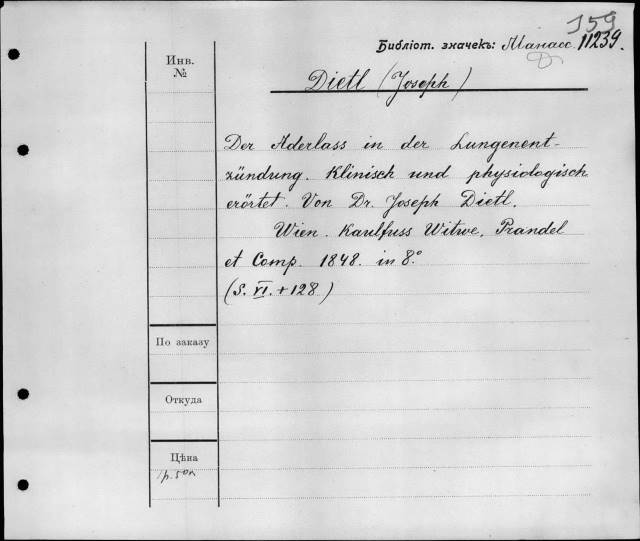 159
Библіот. значекъ: Манасс. 11239.
D
Dietl (Joseph)
Инв.
№
Der Aderlass in der Lungenent-
zündung. Klinisch und physiologisch
erörtet. Von Dr. Joseph Dietl.
Wien. Kaulfuss Witwe, Prandel
et Comp. 1848. in 8.°
(S. VI. + 128)
По заказу
Откуда
Цѣна
1 р. 50 к